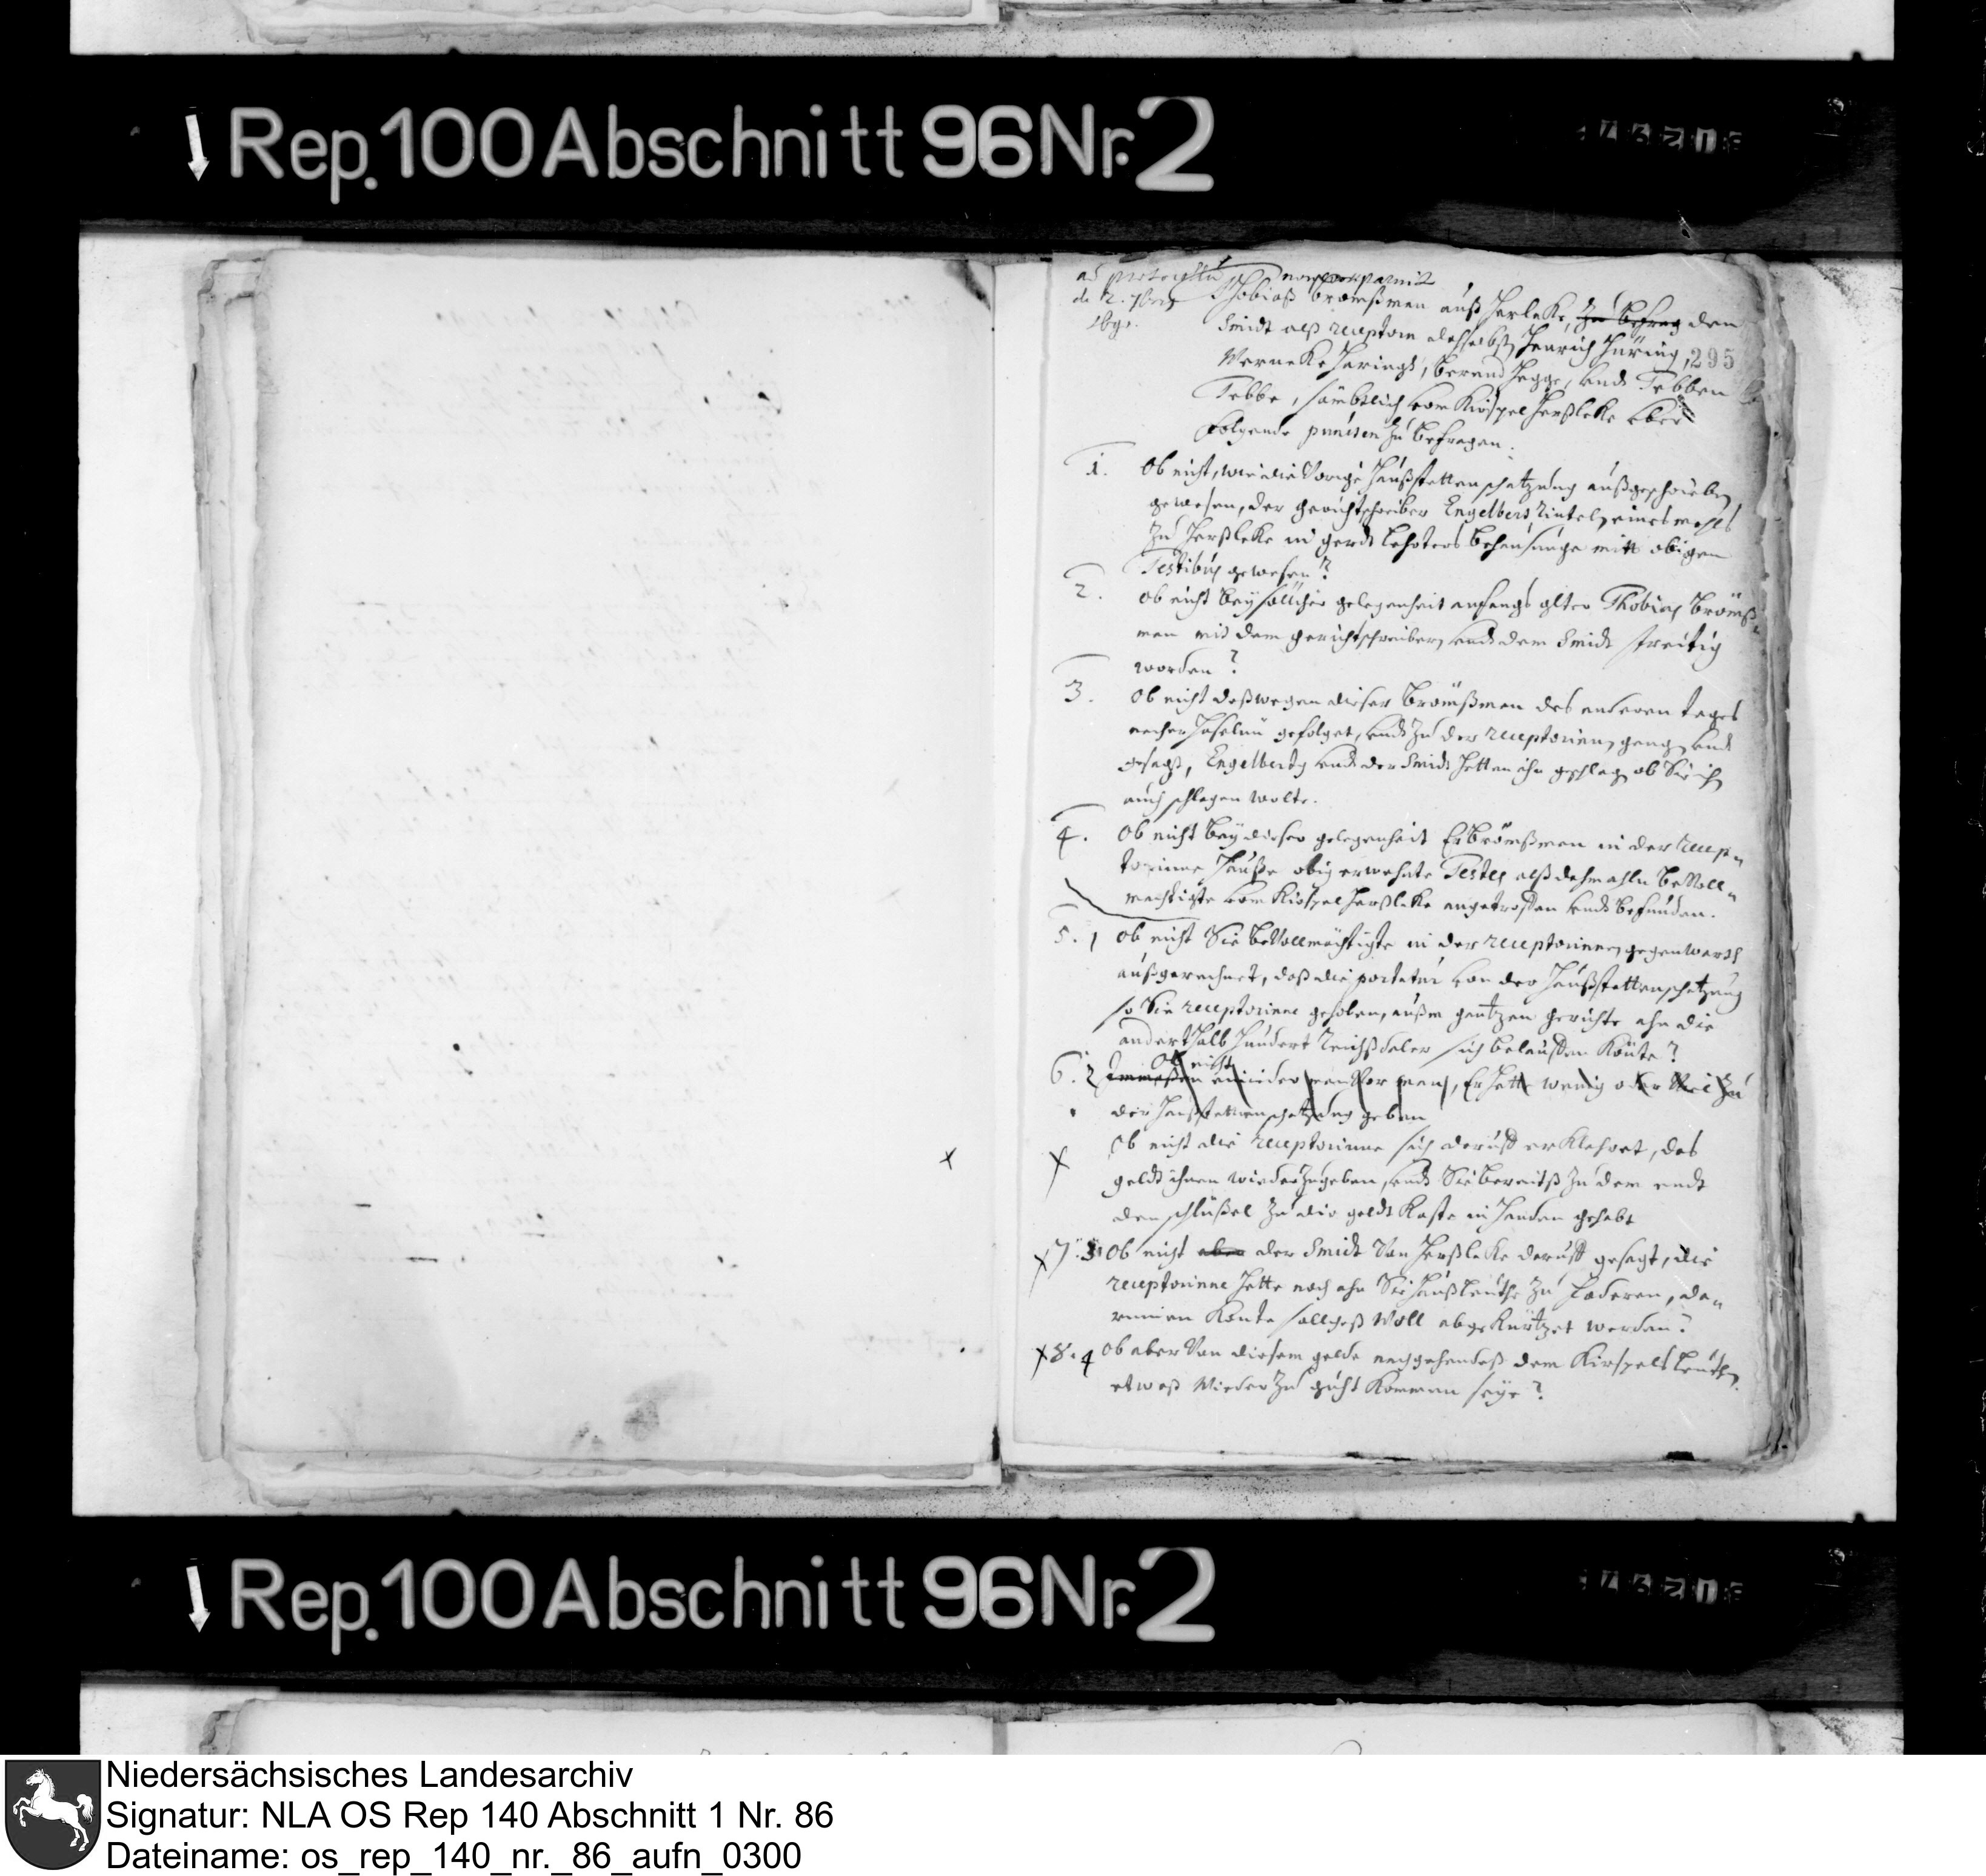 Rep. 100 Abschnitt 96 Nr. 2
ad
de 2. 7bris
Thobiaß Brömßman auß Herßleke, zu befrag den
Smidt alß receptorn daßselbst, Henrich Hüring,
295
Werneke Harings, Berend Hegge, undt Tebben
Tebbe, sämbtlich vom Kirspel Herßleke uber
folgende puncten zu befragen.
1. Ob nicht, wie die Vorige Haußstettenschatzung außgeschrieben
gewesen, der gerichtschreiber Engelbert einesmahls
zu Herßleke in gerdt behausunge mitt obigen
Testibus gewesen?
2. ob nicht bey sollicher gelegenheit anfangs alter Thobias Brömß-
man mit dem gerichtschreiber, undt dem Smidt streitig
worden?
3. Ob nicht deßwegen dieser Brömßman des anderen tages
nacher Haselün gefolget, undt zu der receptorinnen gang undt
gesagt, Engelberts undt der Smidt hetten ihn geschlag, ob Sie ihn
auch schlagen wolte.
4. Ob nicht bey dieser gelegenheit Er Brömßman in der recep-
torinne Hauße obig erwehnte Testes, alß dahmahln bevoll-
mechtigte vom Kirspel Herßleke angetroffen undt befunden.
5. 1 Ob nicht Sie bevollmächtigte in der receptorinnen gegenwarth
außgerechnet, daß die portatur von der Haußstettenschatzung
so Sie receptorinne gehoben, außm gantzen gerichte ahn die
anderthalb hundert Reichßdaler sich belauffen könte?
Ob nicht
6. 2 Immaßen ein ieder, Er hette wenig oder viel zu
der Haußstettenschatzung geben
Ob nicht die receptorinne sich daruff erklehret, das
geldt ihnen wiederzugeben, undt Sie bereitß zu dem endt
den schlüßel zu der geldt Kaste in handen gehabt
7. 3 Ob nicht aber der Smidt Van Herßleke daruff gesagt, die
receptorinne hette noch ahn Sie Haußleuthe zu foderen, da-
rinnen konte sollches woll abgekürtzet werden?
8. 4 Ob aber Van diesem gelde nachgehendeß dem Kirspelsleuthen
etwaß wieder zu guht kommen seye?
Rep. 100 Abschnitt 96 Nr. 2
Niedersächsisches Landesarchiv
Signatur: NLA OS Rep 140 Abschnitt 1 Nr. 86
Dateiname: os_rep_140_nr._86_aufn_0300